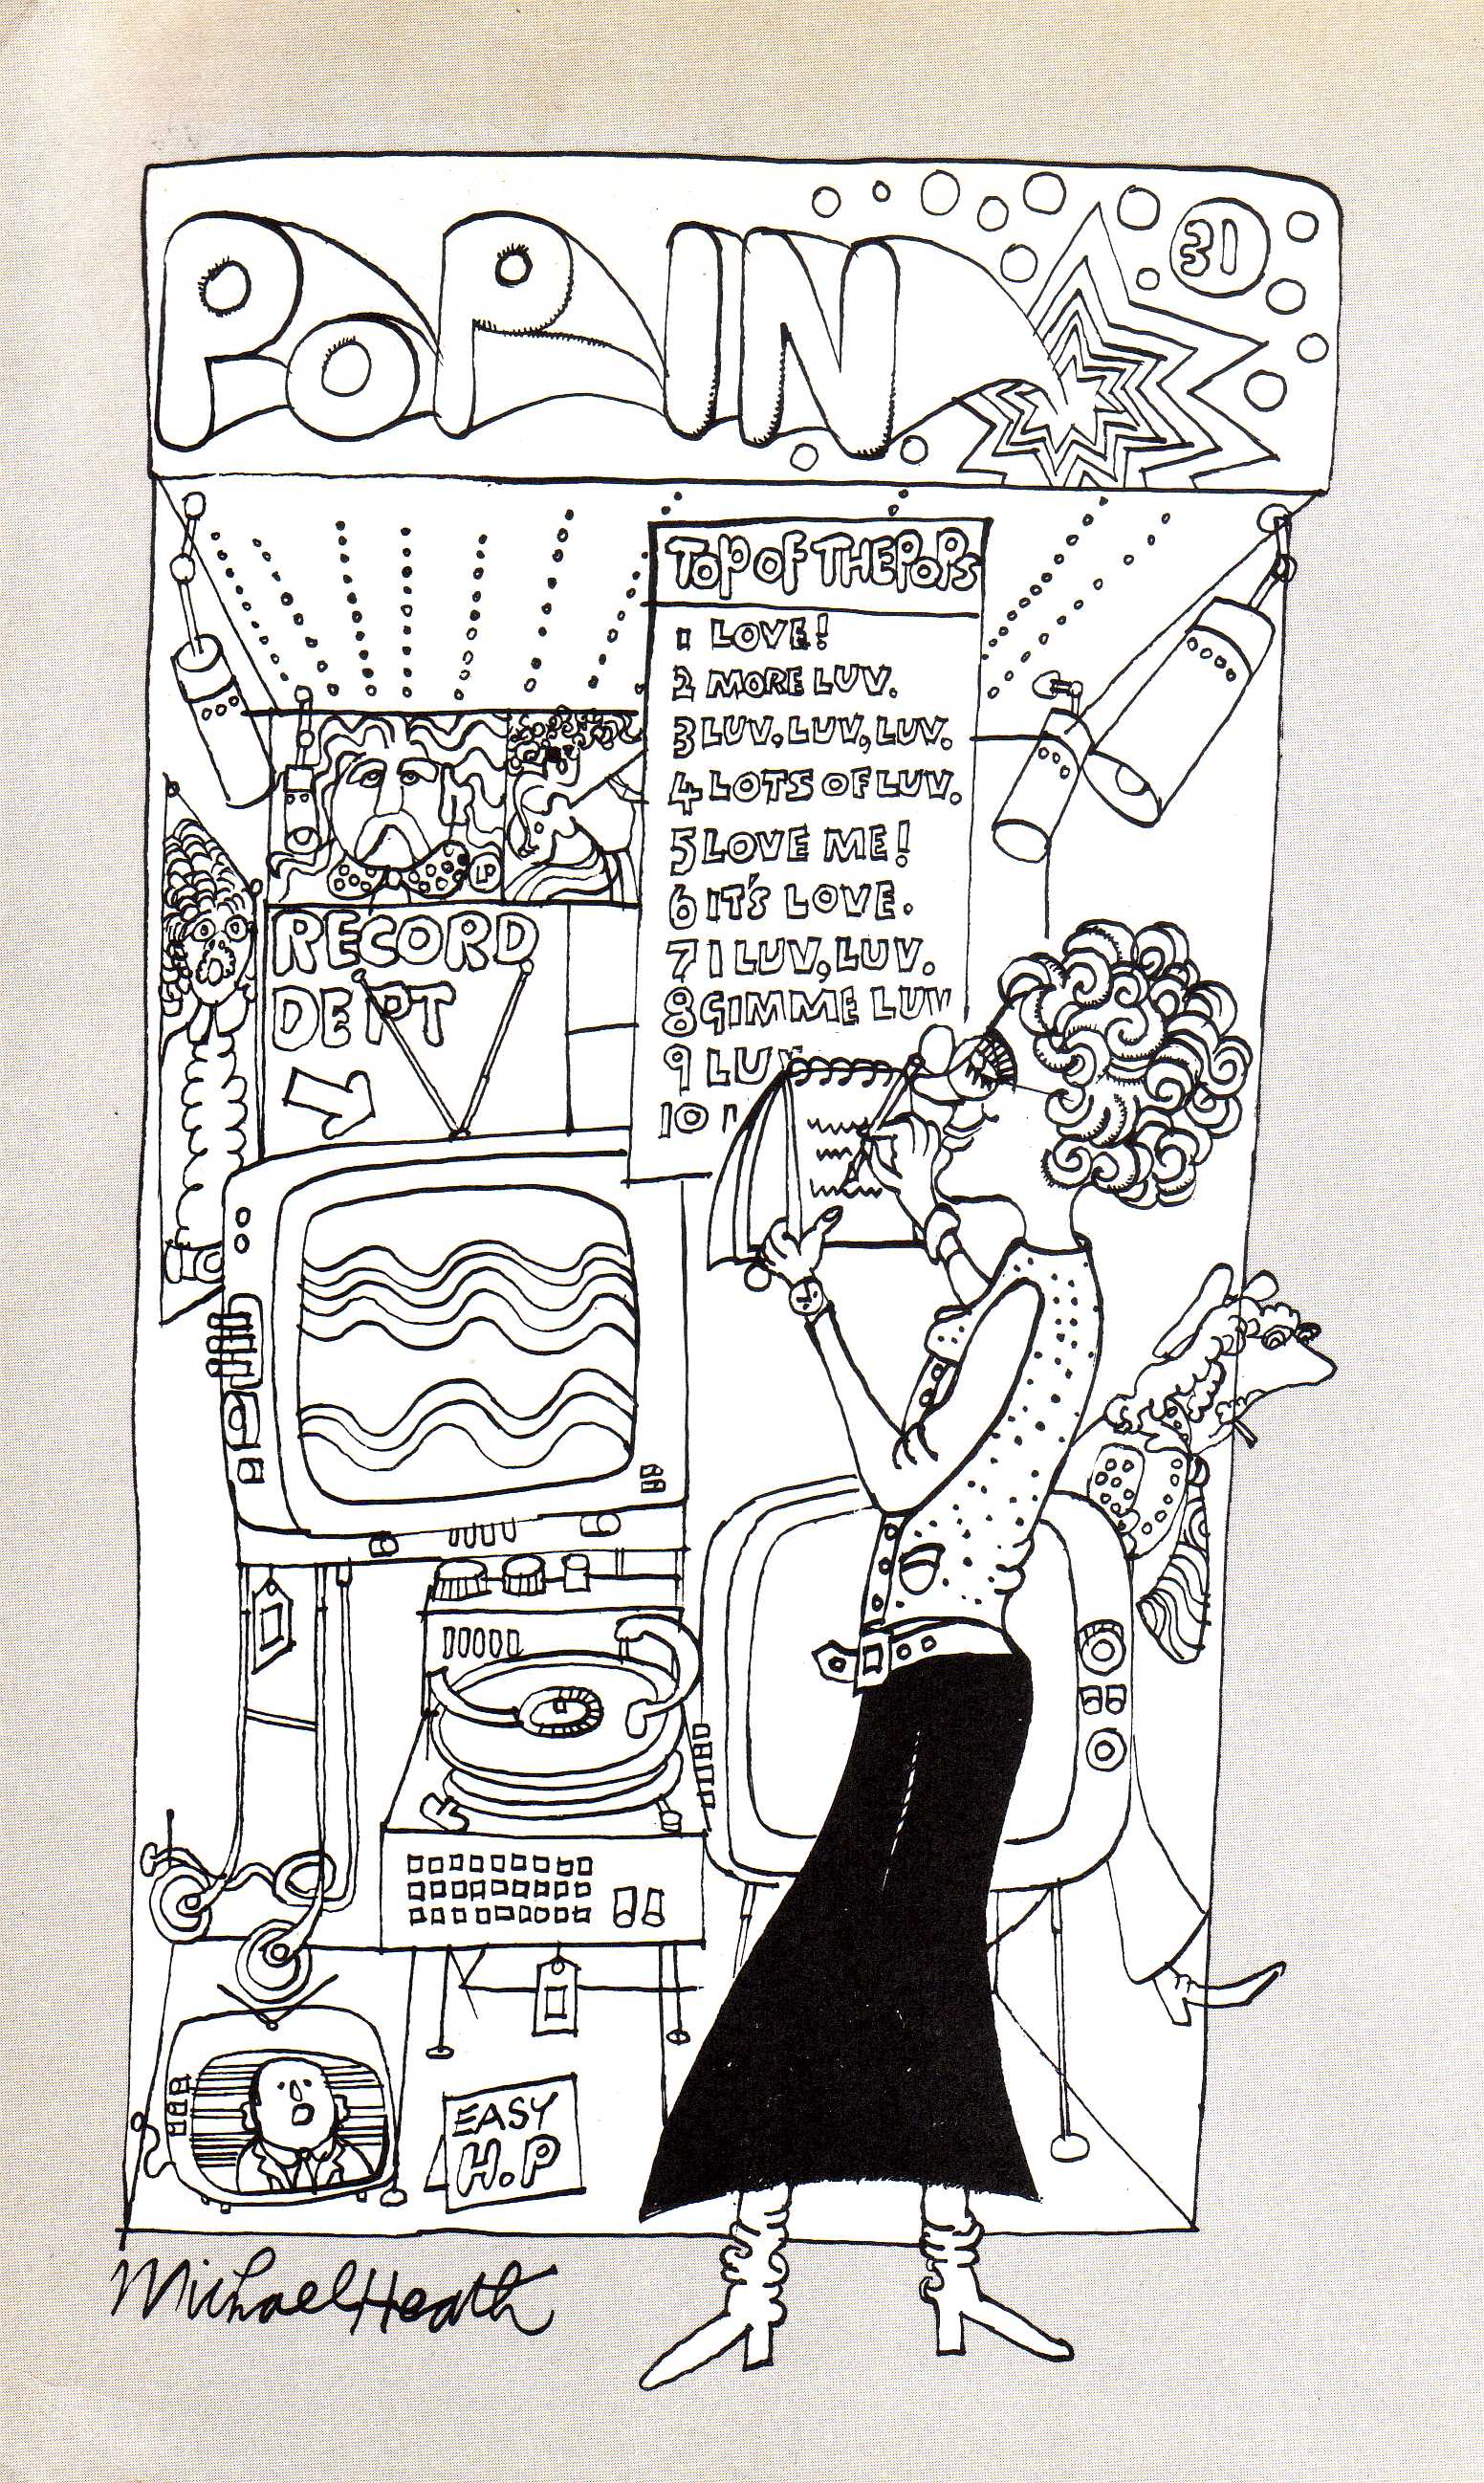 POP IN
31
TOP OF THE POPS
1 LOVE!
2 MORE LUV.
3 LUV, LUV, LUV.
4 LOTS OF LUV.
5 LOVE ME!
6 IT'S LOVE.
7 I LUV, LUV.
8 GIMME LUV
9 LUV
10
LP
RECORD
DEPT
EASY
H.P
Michael Heath